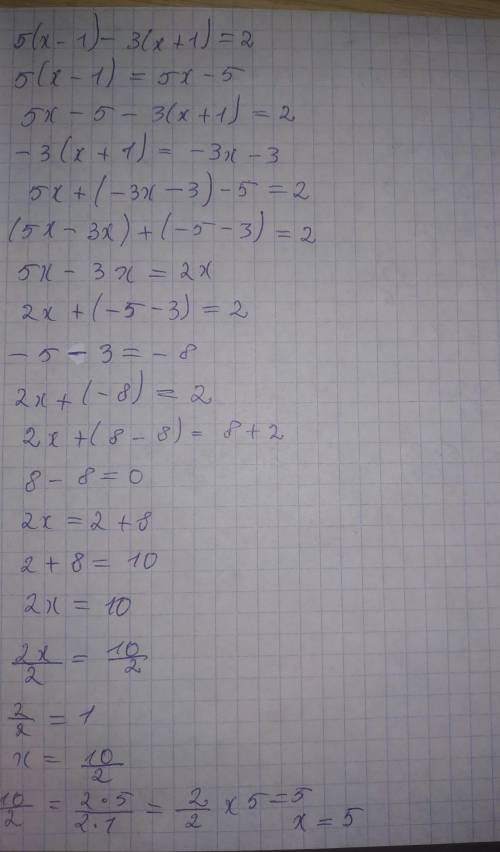 5(x-1)-3(x+1)=2
5(x-1)=5x-5
5x-5-3(x+1)=2
-3(x+1)=-3x-3
5x+(-3x-3)-5=2
(5x-3x)+(-5-3)=2
5x-3x=2x
2x+(-5-3)=2
-5-3=-8
2x+(-8)=2
2x+(8-8)=8+2
8-8=0
2x=2+8
2+8=10
2x=10
2x/2=10/2
2/2=1
x=10/2
10/2=2·5/2·1=2/2x5=5
x=5